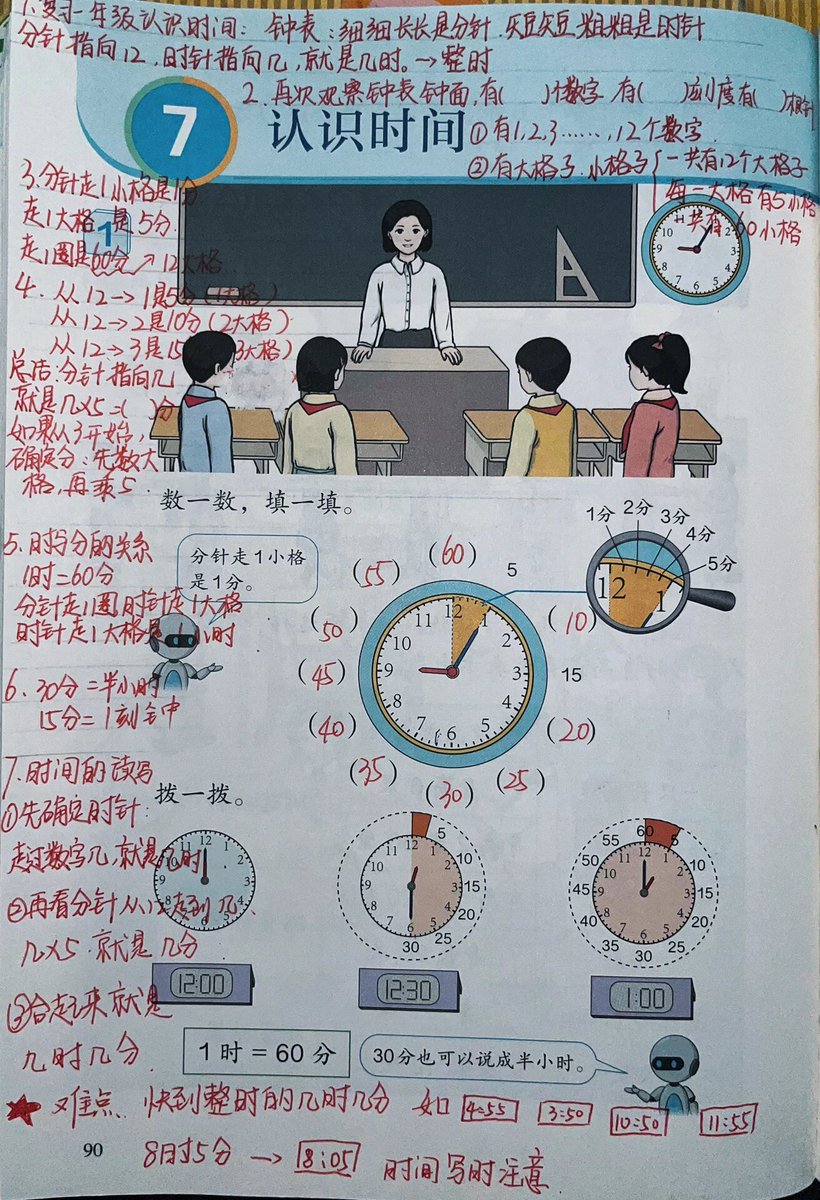 1.复习一年级认识时间: 钟表:细细长长是分针.矮矮粗粗是时针
分针指向12,时针指向几,就是几时。→整时
2.再次观察钟表钟面,有( )个数字 有( )刻度有( )根针
7
认识时间
①有1,2,3……,12个数字
②有大格子.小格子 一共有12个大格子
每一大格有5小格
一共有60小格
3.分针走1小格是1分
走1大格 是5分.
走1圈是60分↗12大格
1
4. 从12→1是5分(1大格)
从12→2是10分(2大格)
从12→3是15 (3大格)
总结:分针指向几
就是几×5=( )分
如果从3开始,
确定分:先数大
格,再乘5.
数一数,填一填。
5.时与分的关系
1时=60分
分针走1圈 时针走1大格
时针走1大格是1小时
分针走1小格
是1分。
(60)
(55)
5
(50)
(10)
(45)
15
(40)
(20)
(35)
(30)
(25)
1分 2分 3分 4分 5分
12 1
12 1 2 3 4 5 6 7 8 9 10 11
6. 30分=半小时
15分=1刻钟
7.时间的读写
①先确定时针:
走过数字几,就是几时
②再看分针从12走到几.
几×5 就是几分
③合起来就是
几时几分.
拨一拨。
5 10 15 20 25 30
60 5 10 15 20 25 30 35 40 45 50 55
12:00
12:30
1:00
1时=60分
30分也可以说成半小时。
★难点. 快到整时的几时几分 如 4:55 3:50 10:50 11:55
90
8时5分 → 8:05 时间写时注意